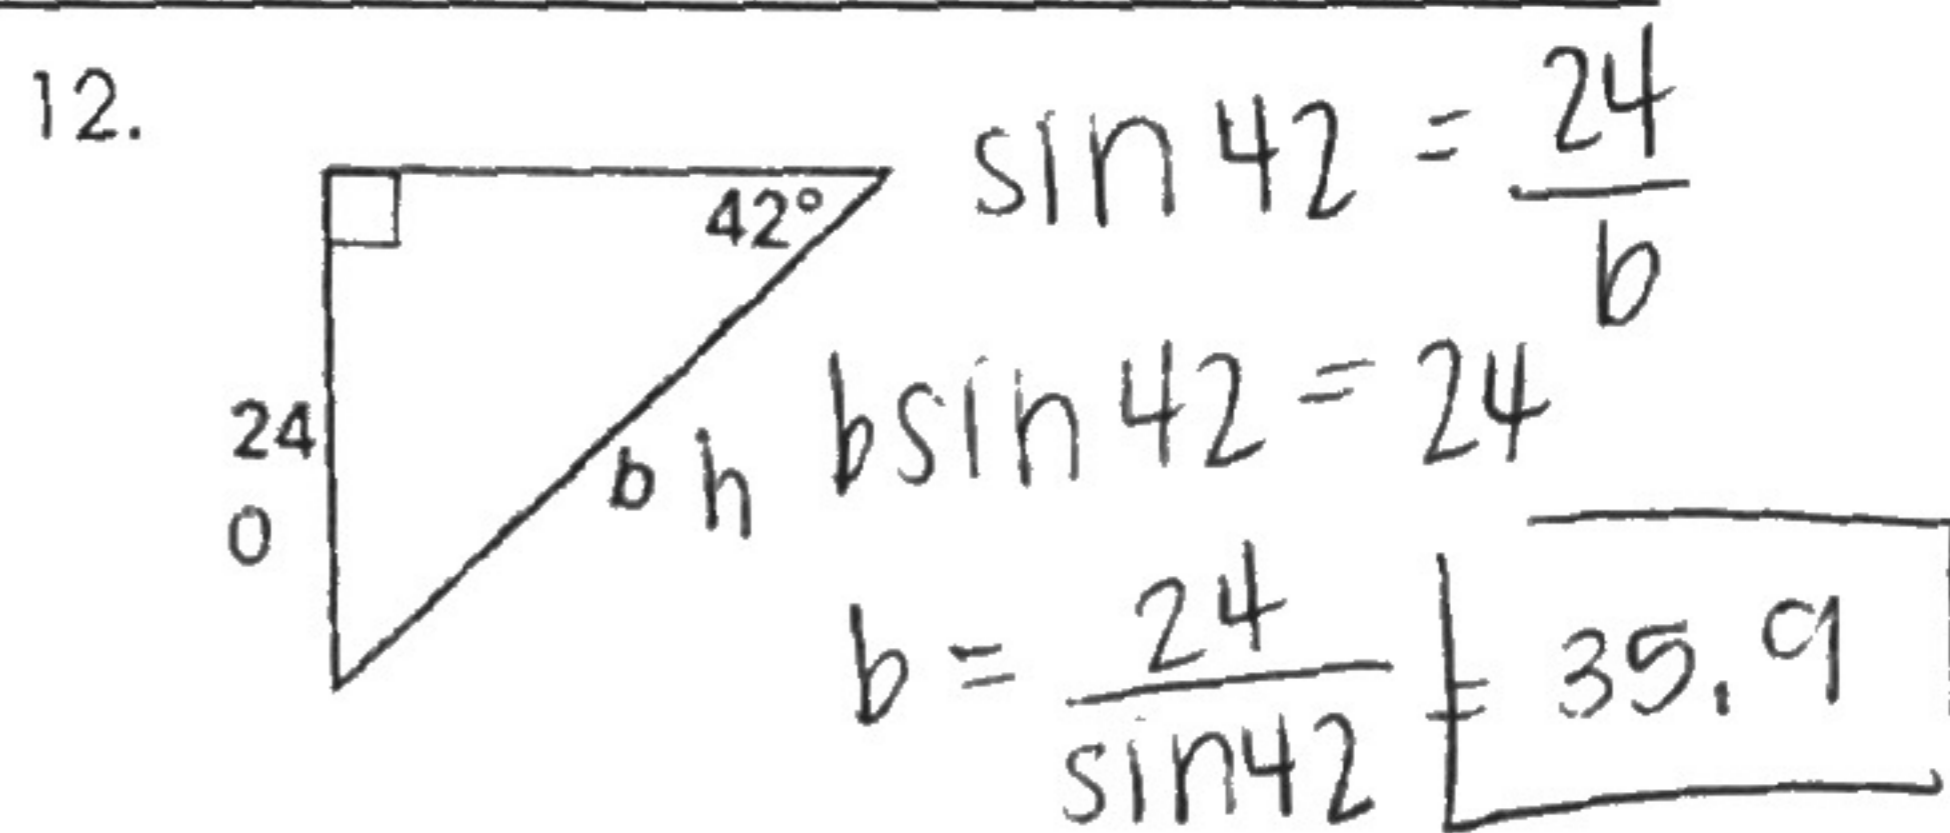 12.
42°
24
0
b h
sin 42 = 24/b
bsin 42 = 24
b = 24/sin42 = 35.9